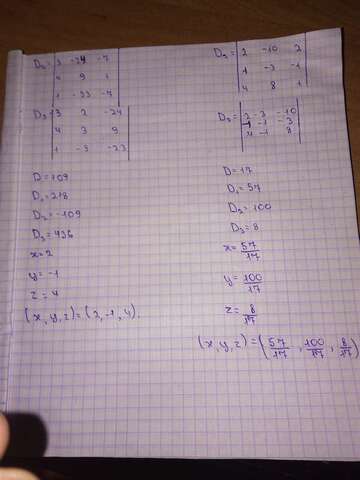 D₂= | 3 -24 -7 |
| 4 9 1 |
| 1 -33 -7 |
D₃= | 3 2 -24 |
| 4 3 9 |
| 1 -3 -23 |
D=109
D₁=218
D₂=-109
D₃=436
x=2
y=-1
z=4
(x,y,z)=(2,-1,4).
D₂= | 2 -10 2 |
| 1 -3 -1 |
| 4 8 1 |
D₃= | 2 -3 -10 |
| 1 -1 -3 |
| 4 -1 8 |
D=17
D₁=57
D₂=100
D₃=8
x=57/17
y=100/17
z=8/17
(x,y,z)=(57/17, 100/17, 8/17)